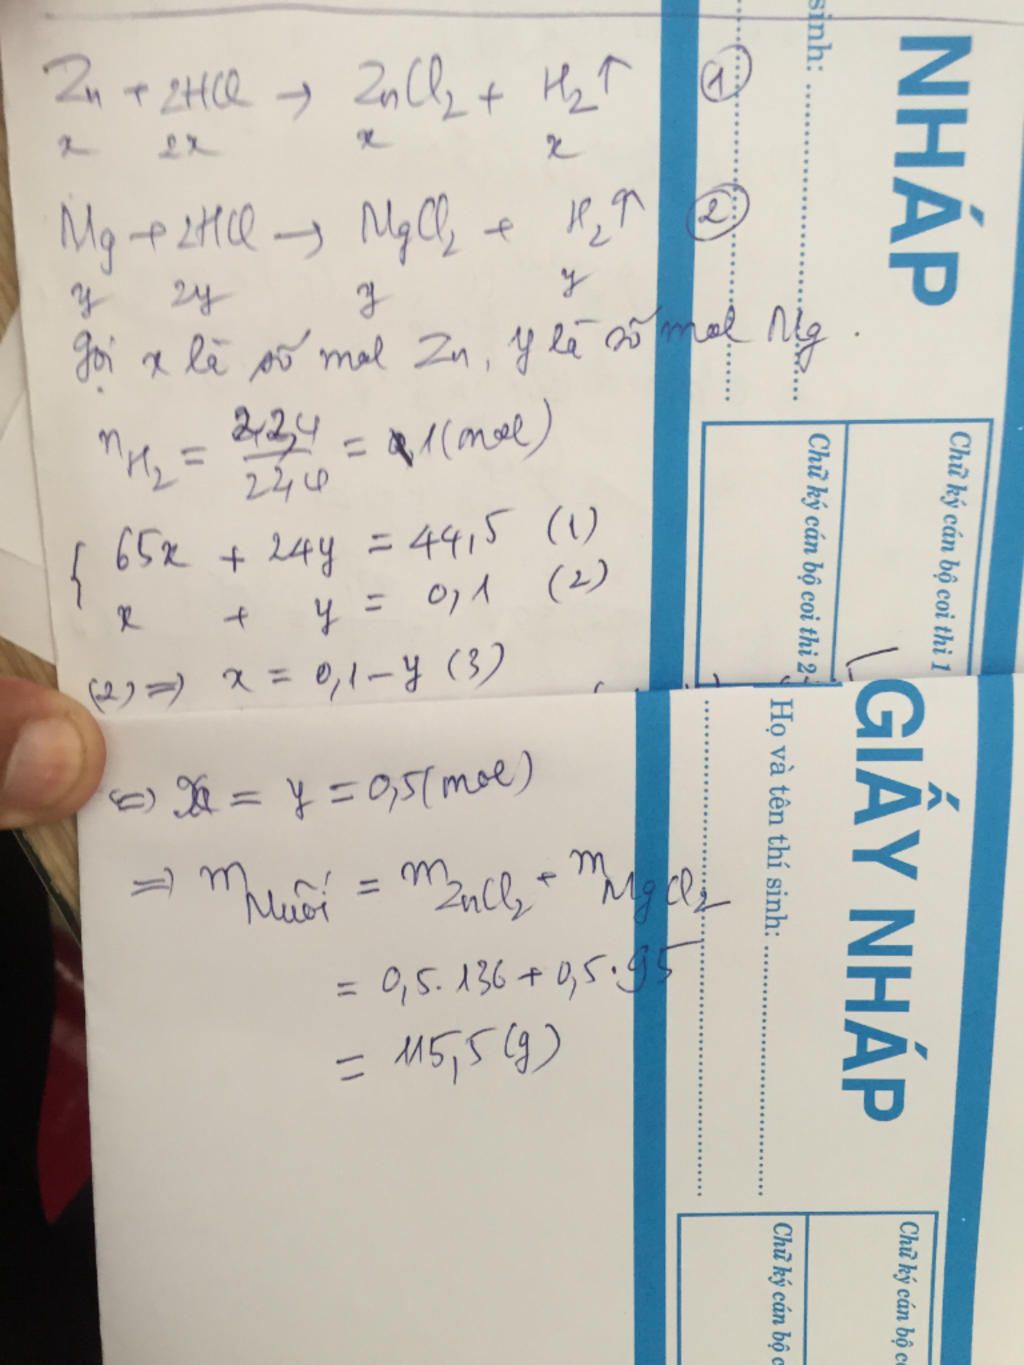 Zn + 2HCl → ZnCl2 + H2↑ (1)
x 2x x x
Mg + 2HCl → MgCl2 + H2↑ (2)
y 2y y y
Gọi x là số mol Zn, y là số mol Mg.
nH2 = 22,4 / 22,4 = 1 (mol)
{ 65x + 24y = 44,5 (1)
x + y = 0,1 (2)
(2) => x = 0,1 - y (3)
<=> x = y = 0,5 (mol)
=> m Muối = m ZnCl2 + m MgCl2
= 0,5 . 136 + 0,5 . 95
= 115,5 (g)
NHÁP
sinh:
Chữ ký cán bộ coi thi 1
Chữ ký cán bộ coi thi 2
GIẤY NHÁP
Họ và tên thí sinh:
Chữ ký cán bộ c
Chữ ký cán bộ c